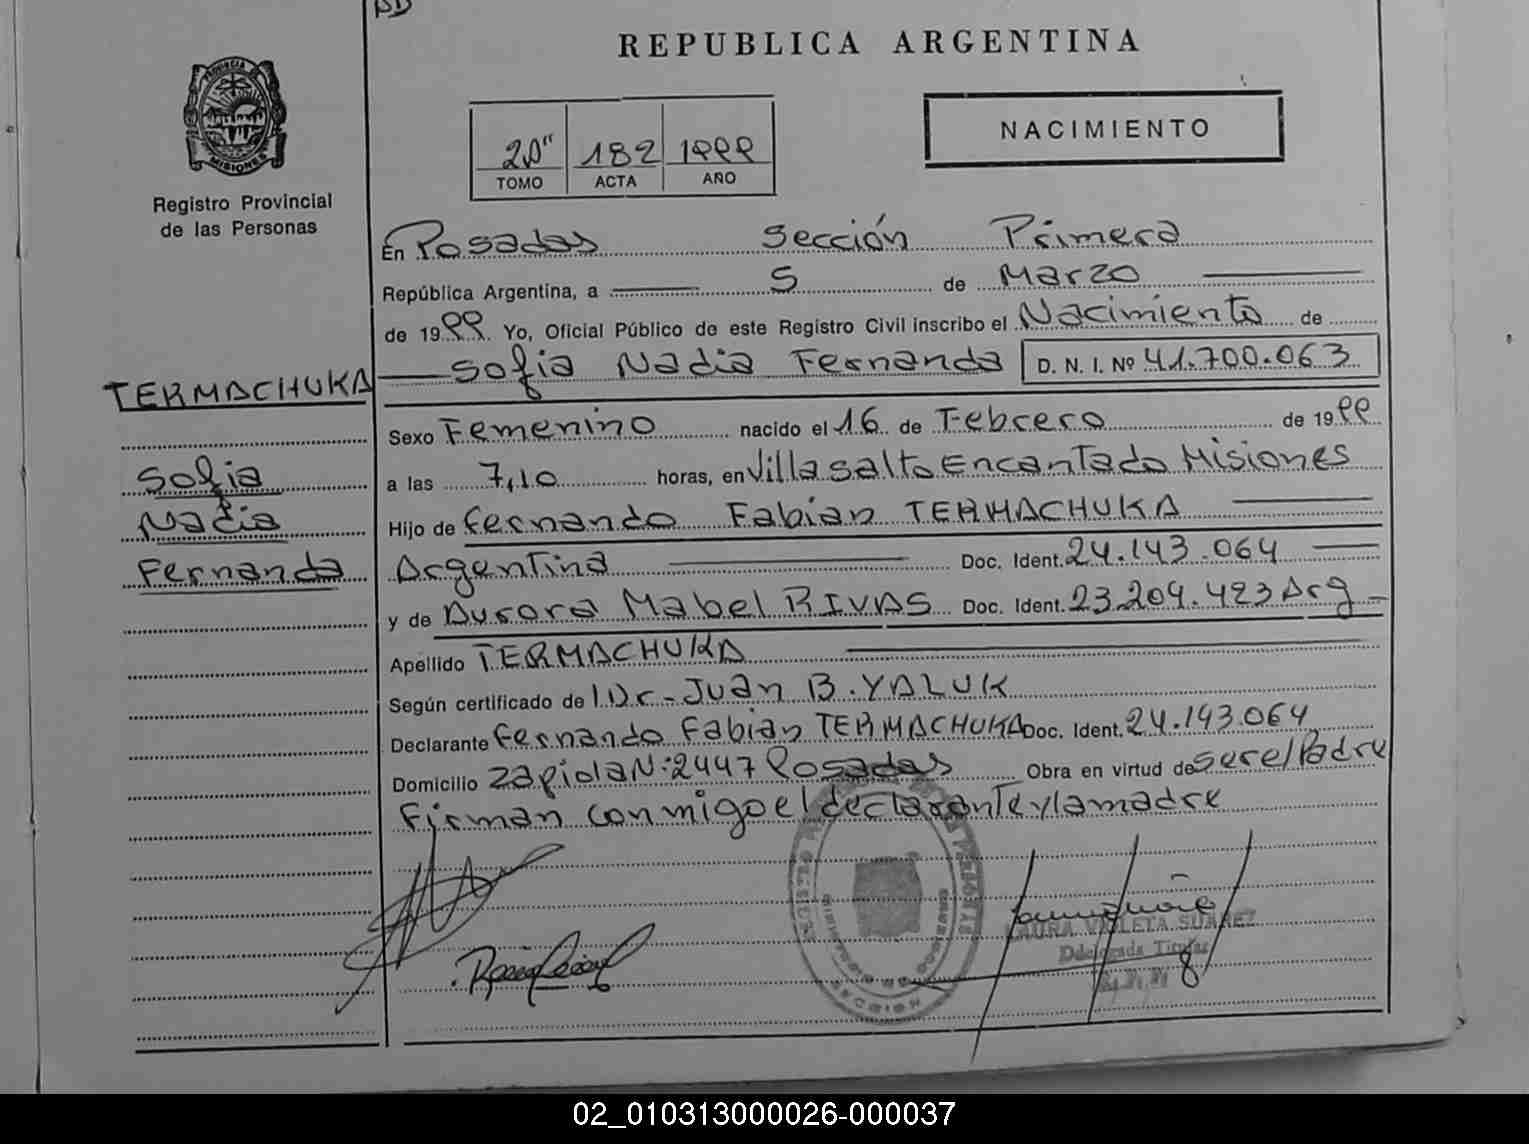 REPUBLICA ARGENTINA
NACIMIENTO
20" 182 1999
TOMO ACTA AÑO
PROVINCIA DE
MISIONES
Registro Provincial
de las Personas
En Posadas Sección Primera
República Argentina, a 5 de Marzo
de 1999. Yo, Oficial Público de este Registro Civil inscribo el Nacimiento de
Sofia Nadia Fernanda D. N. I. Nº 41.700.063
TERMACHUKA
Sexo Femenino nacido el 16 de Febrero de 1999
Sofia
a las 7,10 horas, en Villa Salto Encantado Misiones
Nadia
Hijo de Fernando Fabian TERMACHUKA
Fernanda
Argentina Doc. Ident. 24.143.064
y de Aurora Mabel RIVAS Doc. Ident. 23.204.423 Arg
Apellido TERMACHUKA
Según certificado de Dr. Juan B. YALUK
Declarante Fernando Fabian TERMACHUKA Doc. Ident. 24.143.064
Domicilio Zapiola N: 2447 Posadas Obra en virtud de ser el Padre
Firman conmigo el declarante y la madre
LAURA VIOLETA SUAREZ
Delegada Titular
02_010313000026-000037